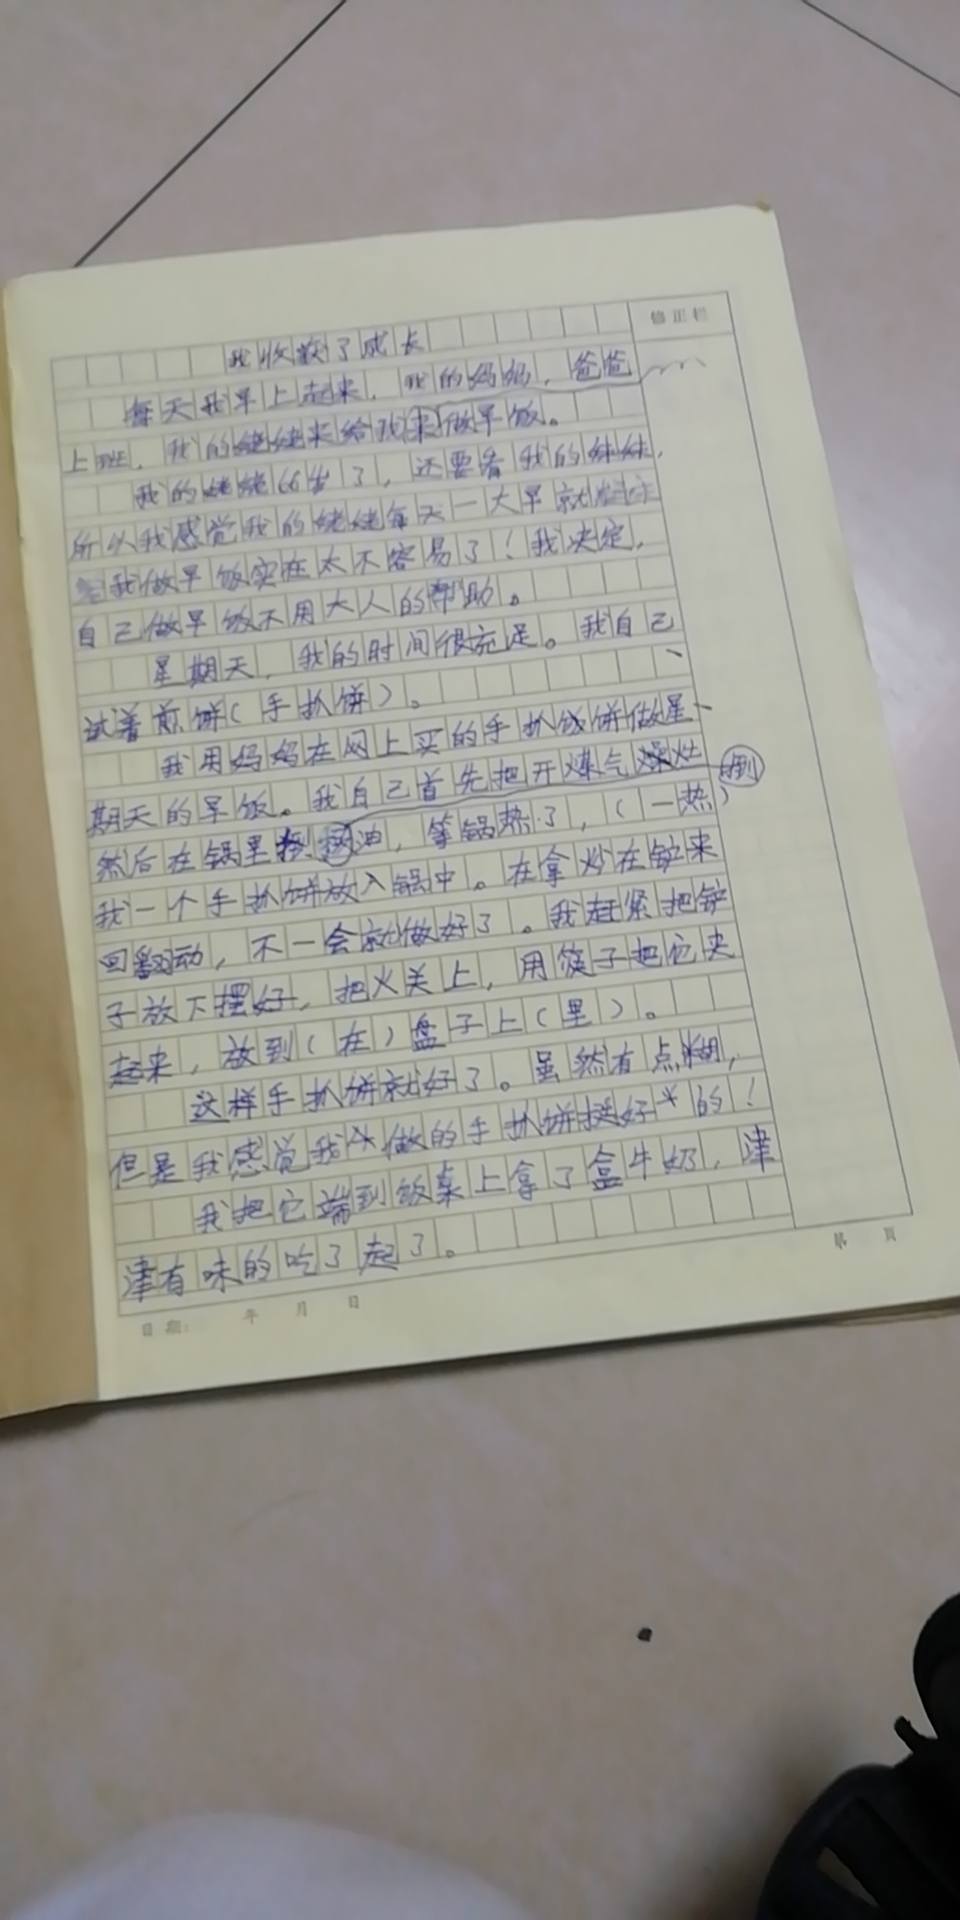 修正栏
我收获了成长
每天我早上起来，我的妈妈，爸爸
上班，我的姥姥来给我来做早饭。
我的姥姥66岁了，还要看我的妹妹，
所以我感觉我的姥姥每天一大早就
我做早饭实在太不容易了！我决定，
自己做早饭不用大人的帮助。
星期天，我的时间很充足。我自己
试着煎饼（手扒饼）。
我用妈妈在网上买的手扒饼做星
期天的早饭。我自己首先把开煤气灶
倒
然后在锅里油，等锅热了，（一热）
我一个手扒饼放入锅中。在拿炒在铲来
回翻动，不一会就做好了。我赶紧把铲
子放下摆好，把火关上，用筷子把它夹
起来，放到（在）盘子上（里）。
这样手扒饼就好了。虽然有点糊，
但是我感觉我做的手扒饼挺好的！
我把它端到饭桌上拿了盒牛奶，津
津有味的吃了起了。
第 页
日期： 年 月 日